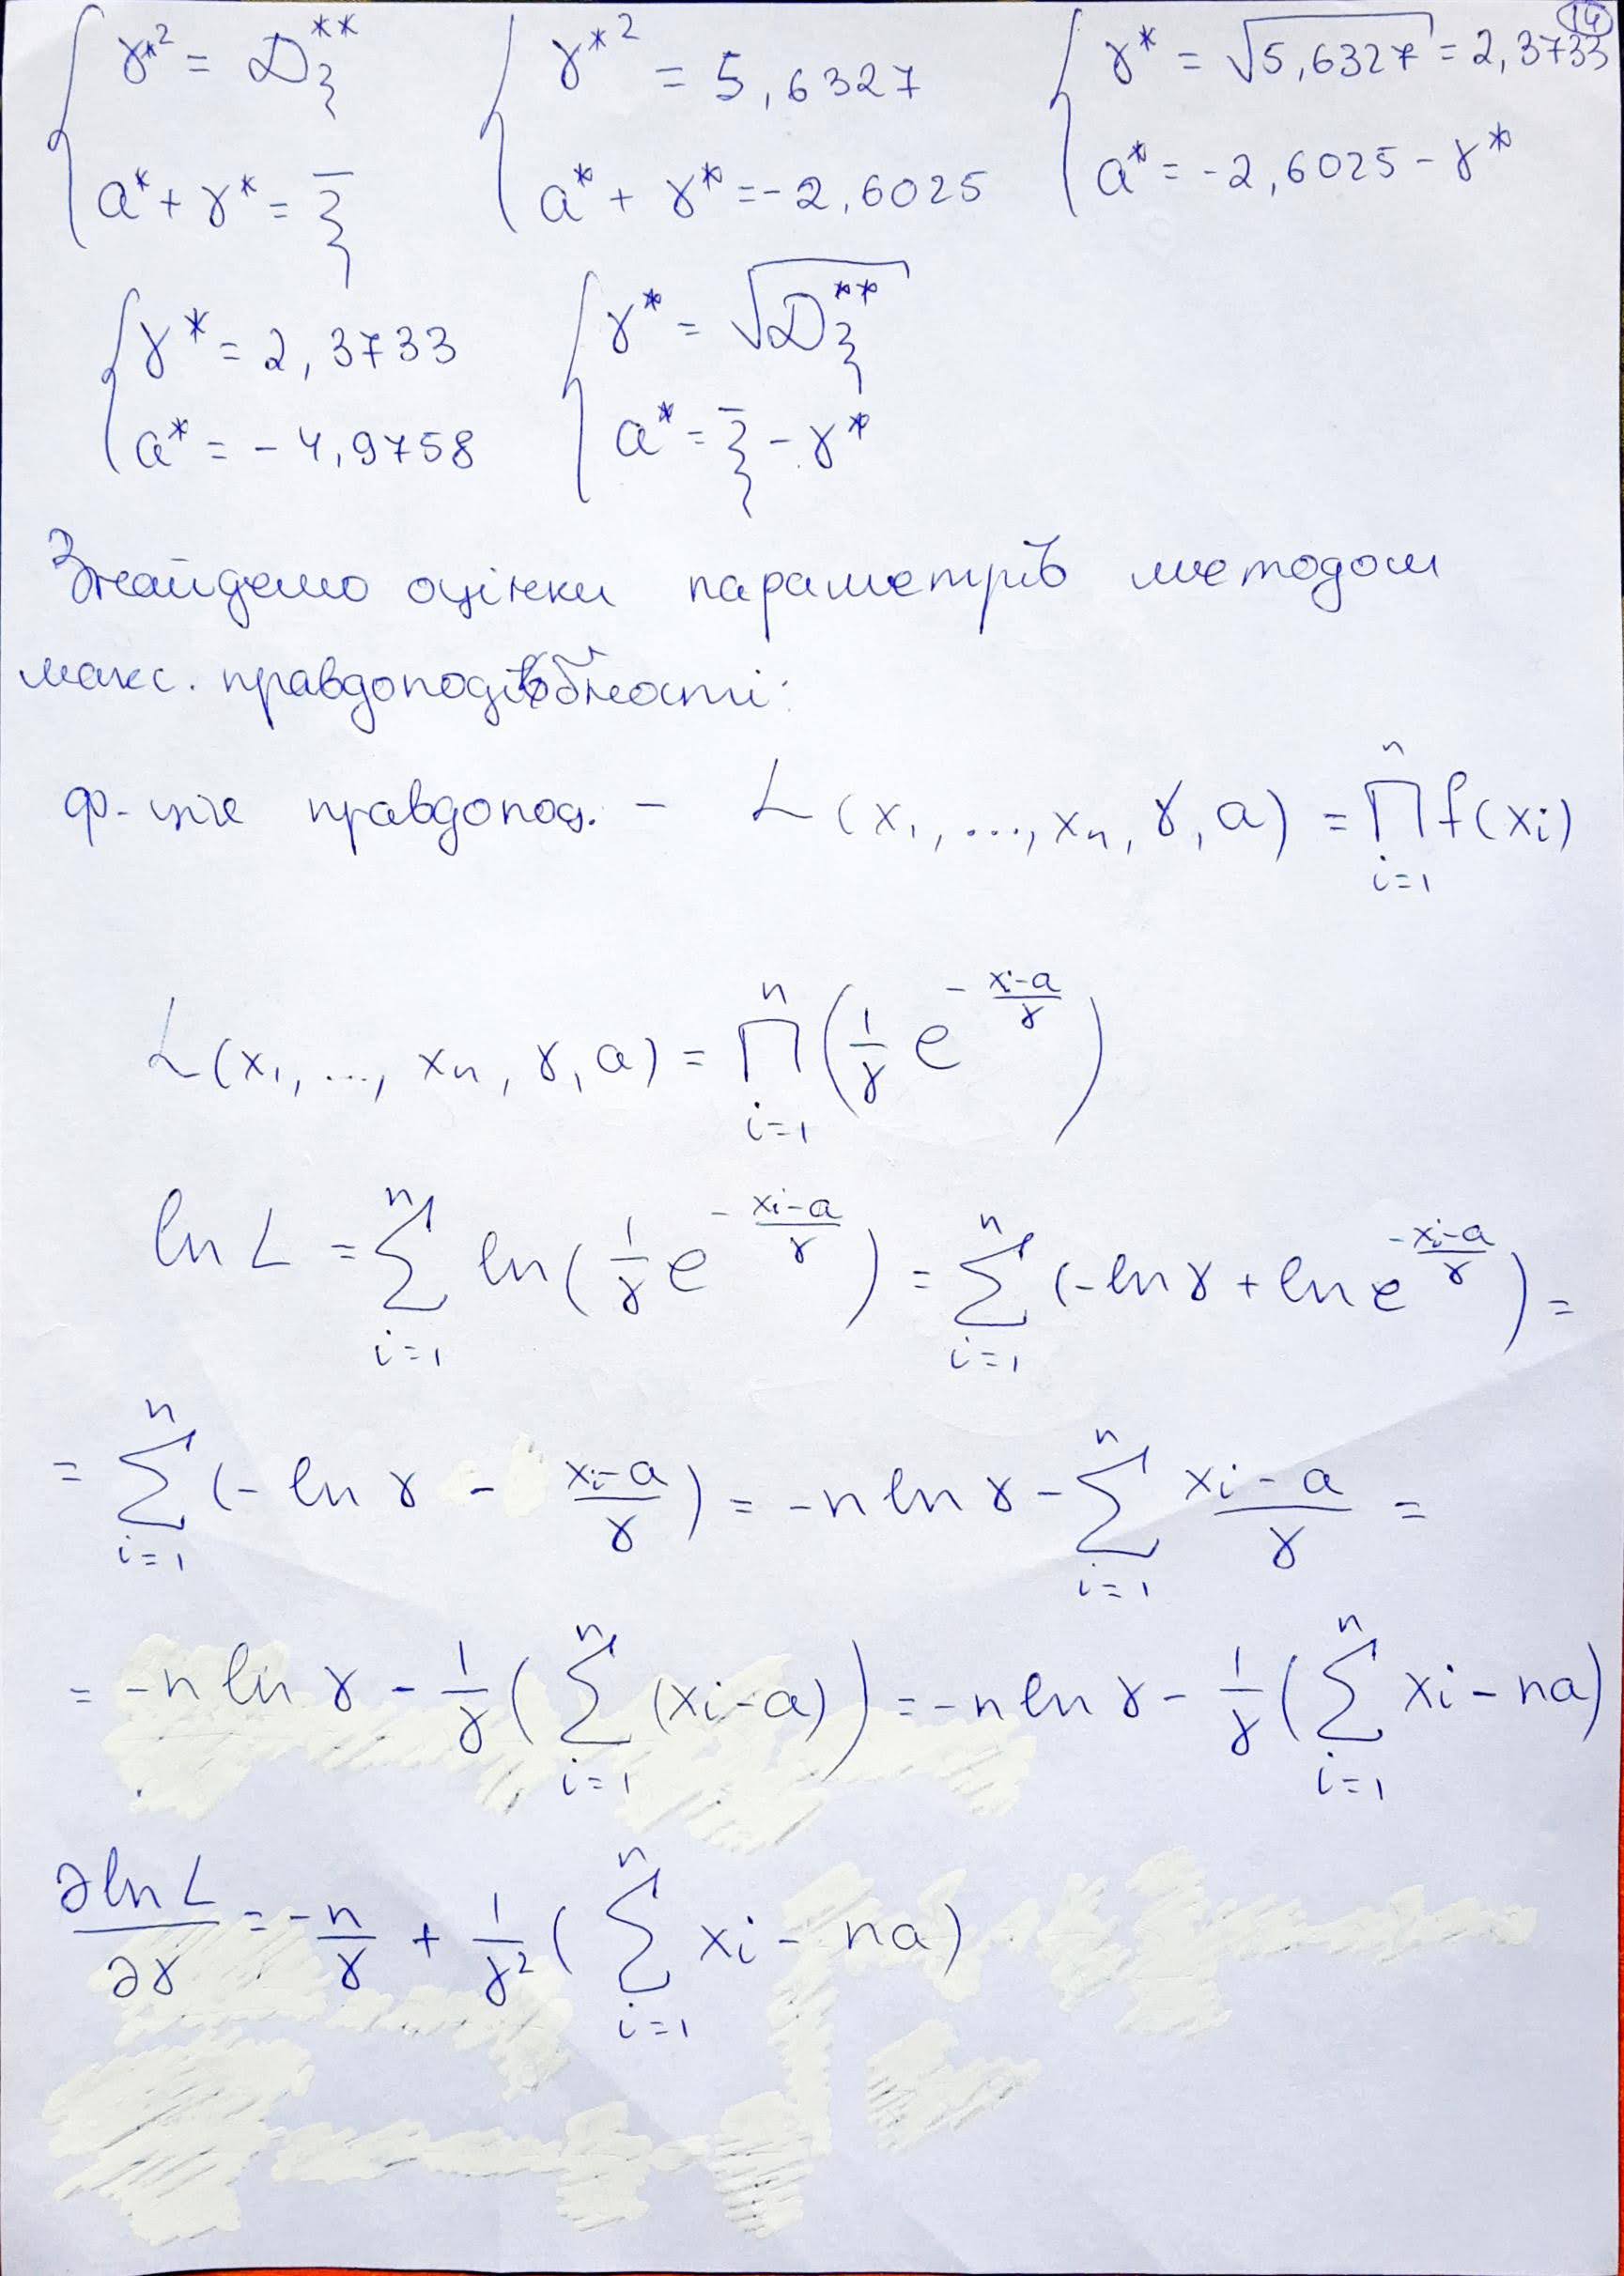 14
{ γ*² = D**ξ { γ*² = 5,6327 { γ* = √5,6327 = 2,3733
a* + γ* = ξ̅ a* + γ* = -2,6025 a* = -2,6025 - γ*
{ γ* = 2,3733 { γ* = √D**ξ
a* = -4,9758 a* = ξ̅ - γ*
Знайдемо оцінки параметрів методом
макс. правдоподібності:
ф-ція правдопод. - L(x₁, ..., xₙ, γ, a) = ∏ⁿᵢ₌₁ f(xᵢ)
L(x₁, ..., xₙ, γ, a) = ∏ⁿᵢ₌₁ (1/γ e^(-(xᵢ-a)/γ))
ln L = ∑ⁿᵢ₌₁ ln(1/γ e^(-(xᵢ-a)/γ)) = ∑ⁿᵢ₌₁ (-ln γ + ln e^(-(xᵢ-a)/γ)) =
= ∑ⁿᵢ₌₁ (-ln γ - (xᵢ-a)/γ) = -n ln γ - ∑ⁿᵢ₌₁ (xᵢ-a)/γ =
= -n ln γ - 1/γ (∑ⁿᵢ₌₁ (xᵢ-a)) = -n ln γ - 1/γ (∑ⁿᵢ₌₁ xᵢ - na)
∂ln L/∂γ = -n/γ + 1/γ² (∑ⁿᵢ₌₁ xᵢ - na)